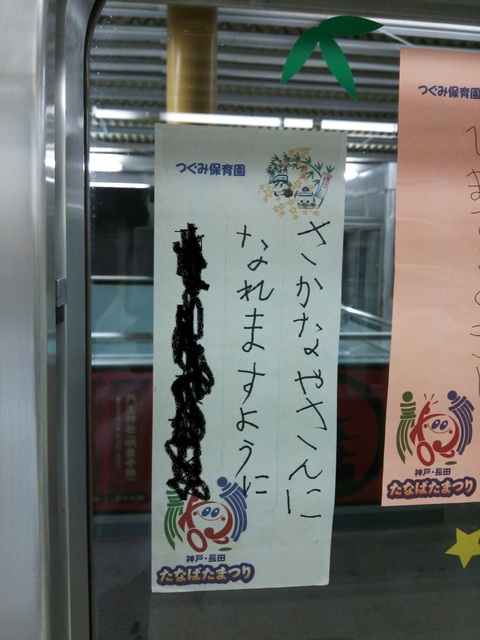 つぐみ保育園
さかなやさんに
なれますように
神戸・長田
たなばたまつり
つぐみ保育園
神戸・長田
たなばたまつり